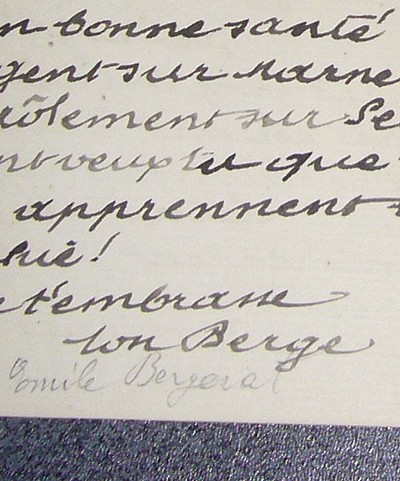 n bonne santé
gent sur Marne
rôlement sur Se
nt veux tu que
apprennent
hie!
e t'embrasse
ton Berge
Emile Bergerat